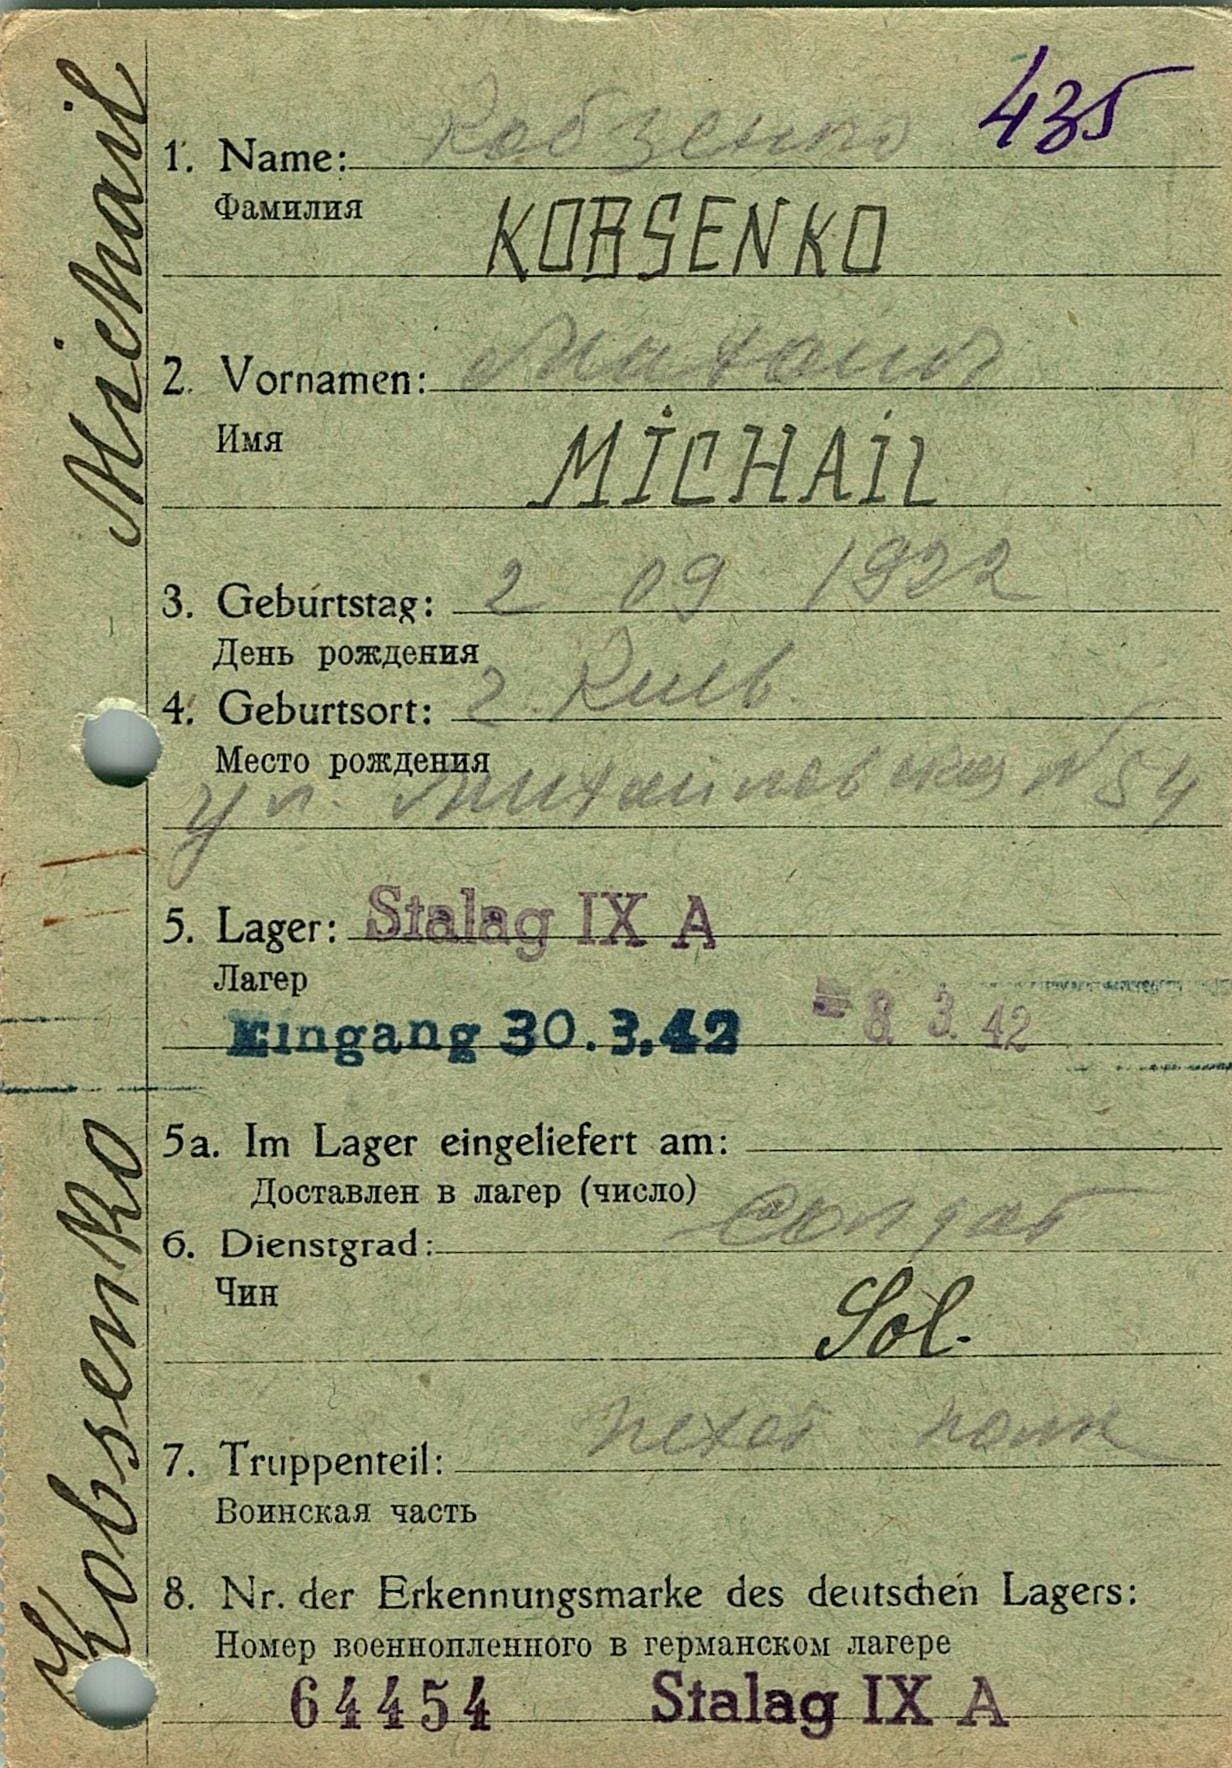 Kobsenko Michail
435
1. Name: Кобзенко
Фамилия
KOBSENKO
2. Vornamen: Михаил
Имя
MICHAIL
3. Geburtstag: 2 09 1922
День рождения
4. Geburtsort: г. Киев
Место рождения
ул. Михайловская № 54
5. Lager: Stalag IX A
Лагер
Eingang 30.3.42 = 8. 3. 42
5a. Im Lager eingeliefert am:
Доставлен в лагер (число)
6. Dienstgrad: Солдат
Чин
Sol.
7. Truppenteil: пехот полк
Воинская часть
8. Nr. der Erkennungsmarke des deutschen Lagers:
Номер военнопленного в германском лагере
64454 Stalag IX A